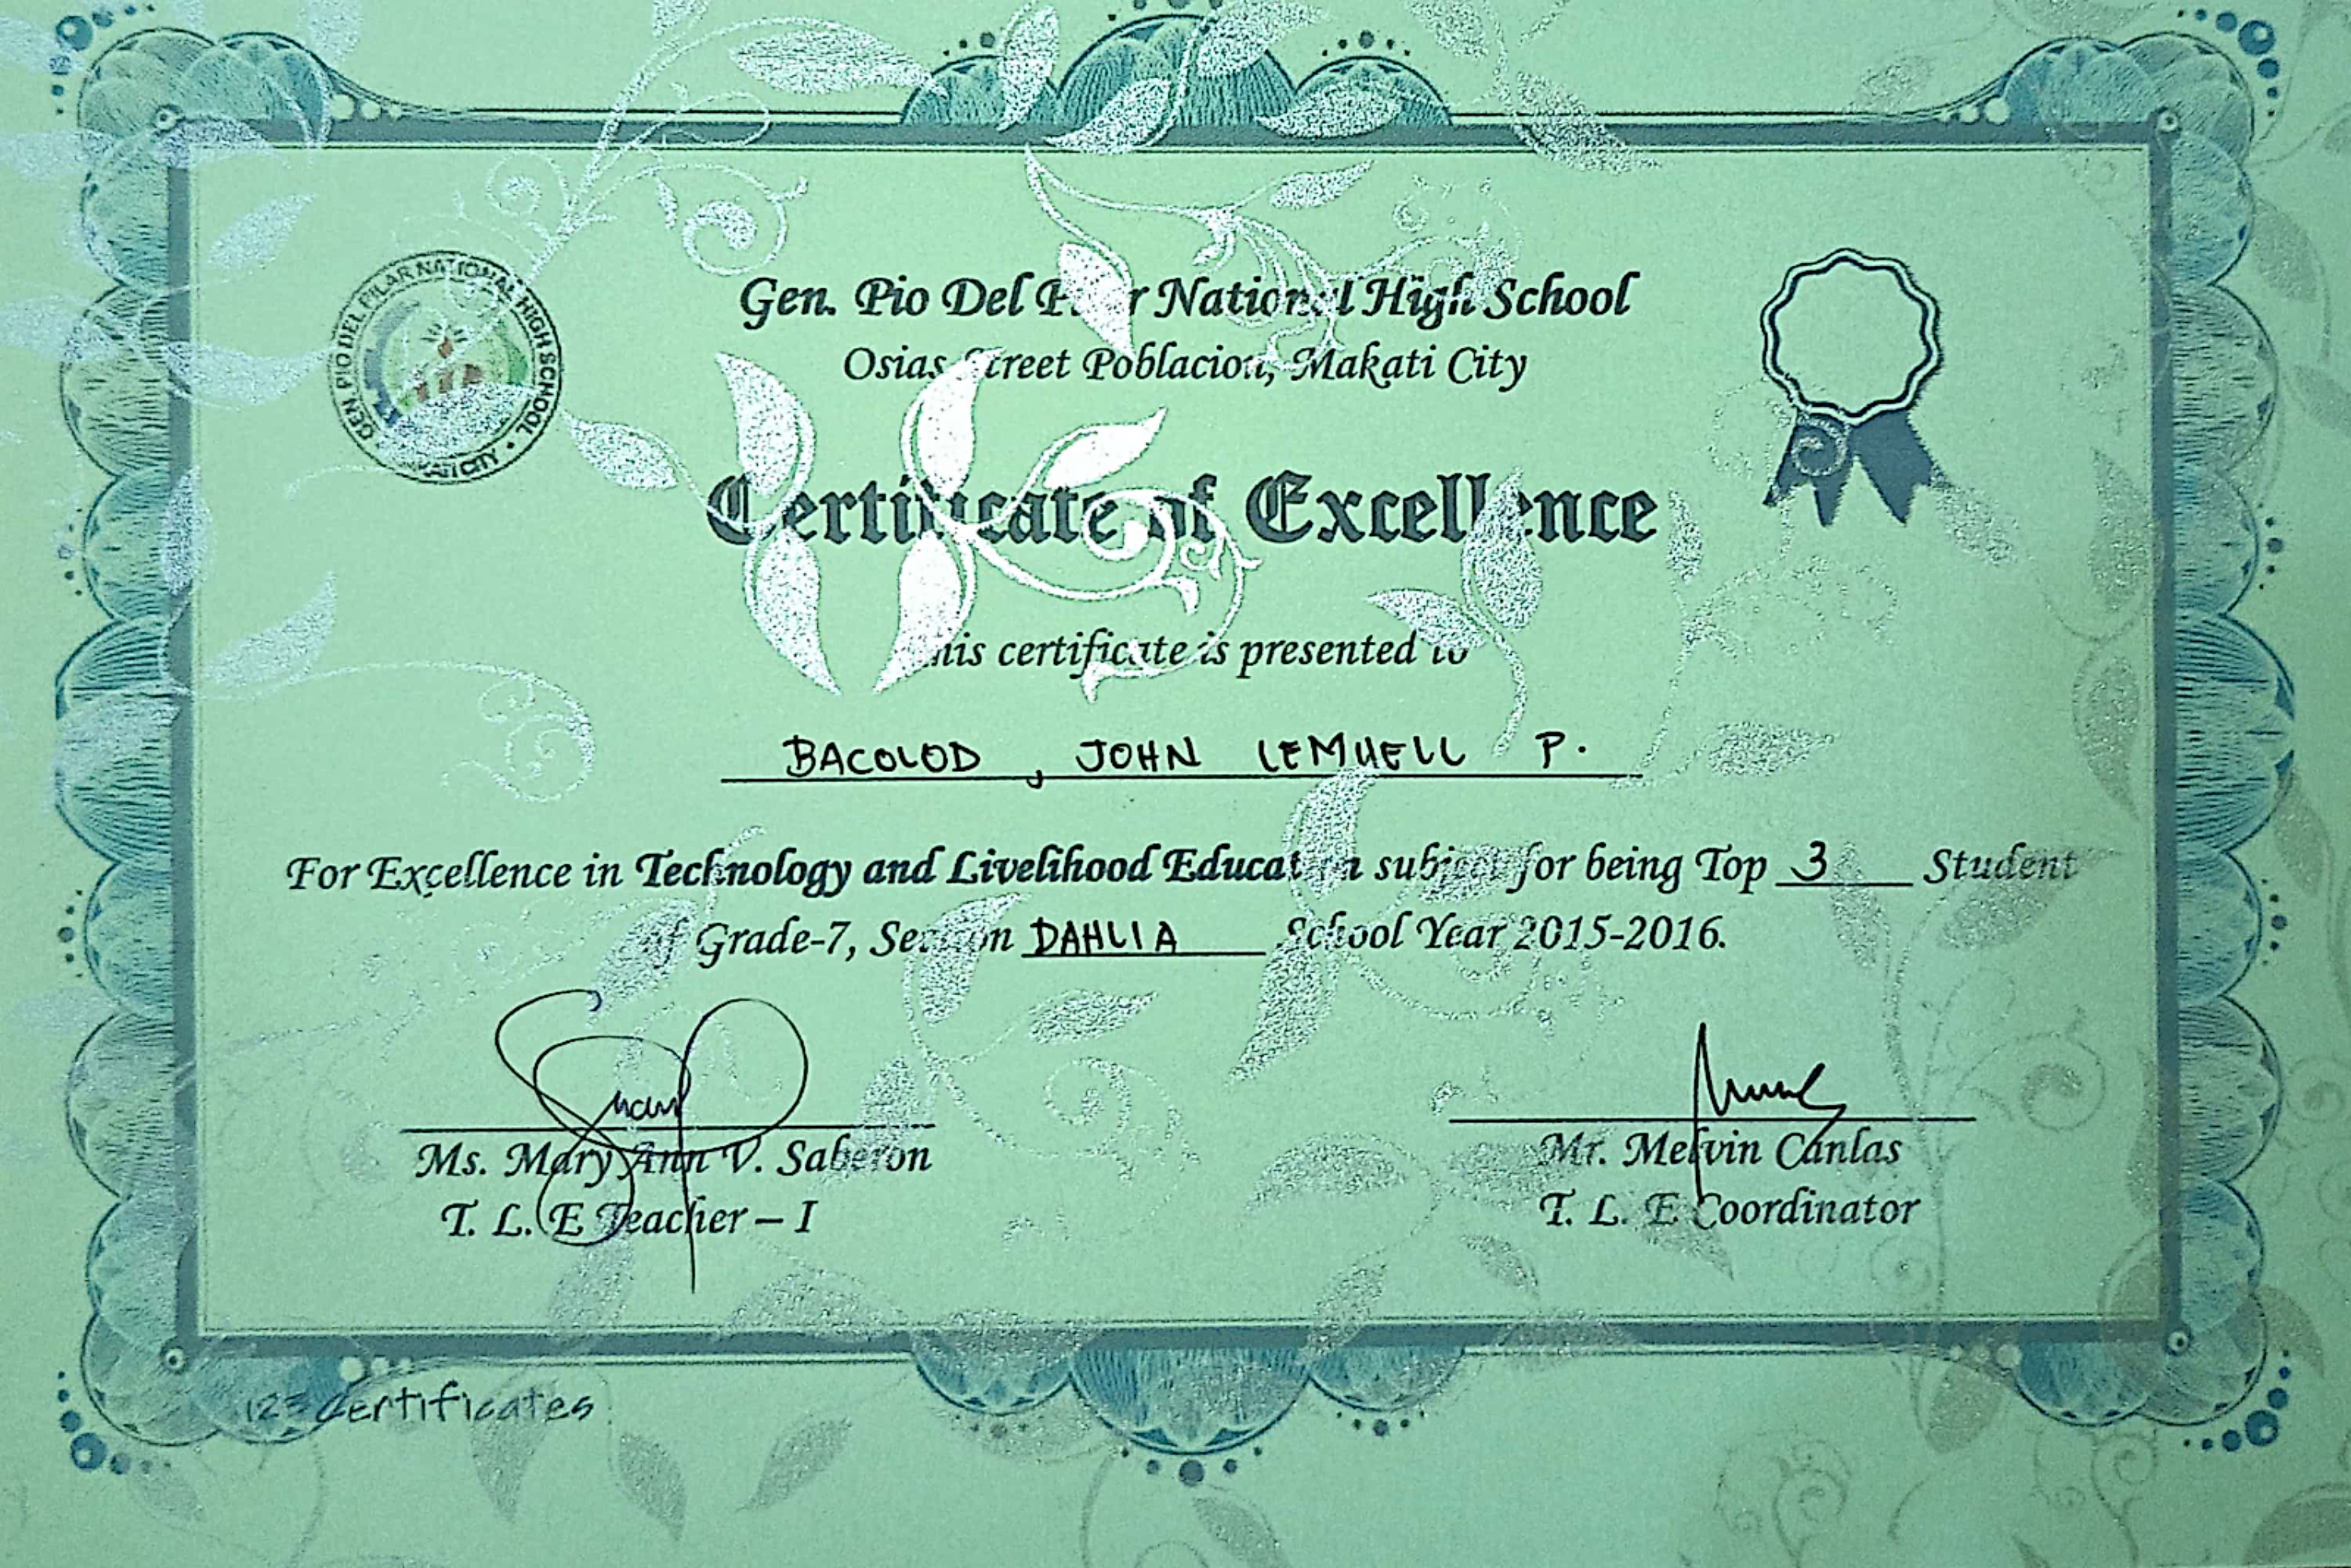 GEN. PIO DEL PILAR NATIONAL HIGH SCHOOL • MAKATI CITY •
Gen. Pio Del Pilar National High School
Osias Street Poblacion, Makati City
Certificate of Excellence
This certificate is presented to
BACOLOD, JOHN LEMUELL P.
For Excellence in Technology and Livelihood Education subject for being Top 3 Student
of Grade-7, Section DAHLIA School Year 2015-2016.
Ms. Mary Ann V. Saberon
T. L. E Teacher – I
Mr. Melvin Canlas
T. L. E Coordinator
123 Certificates